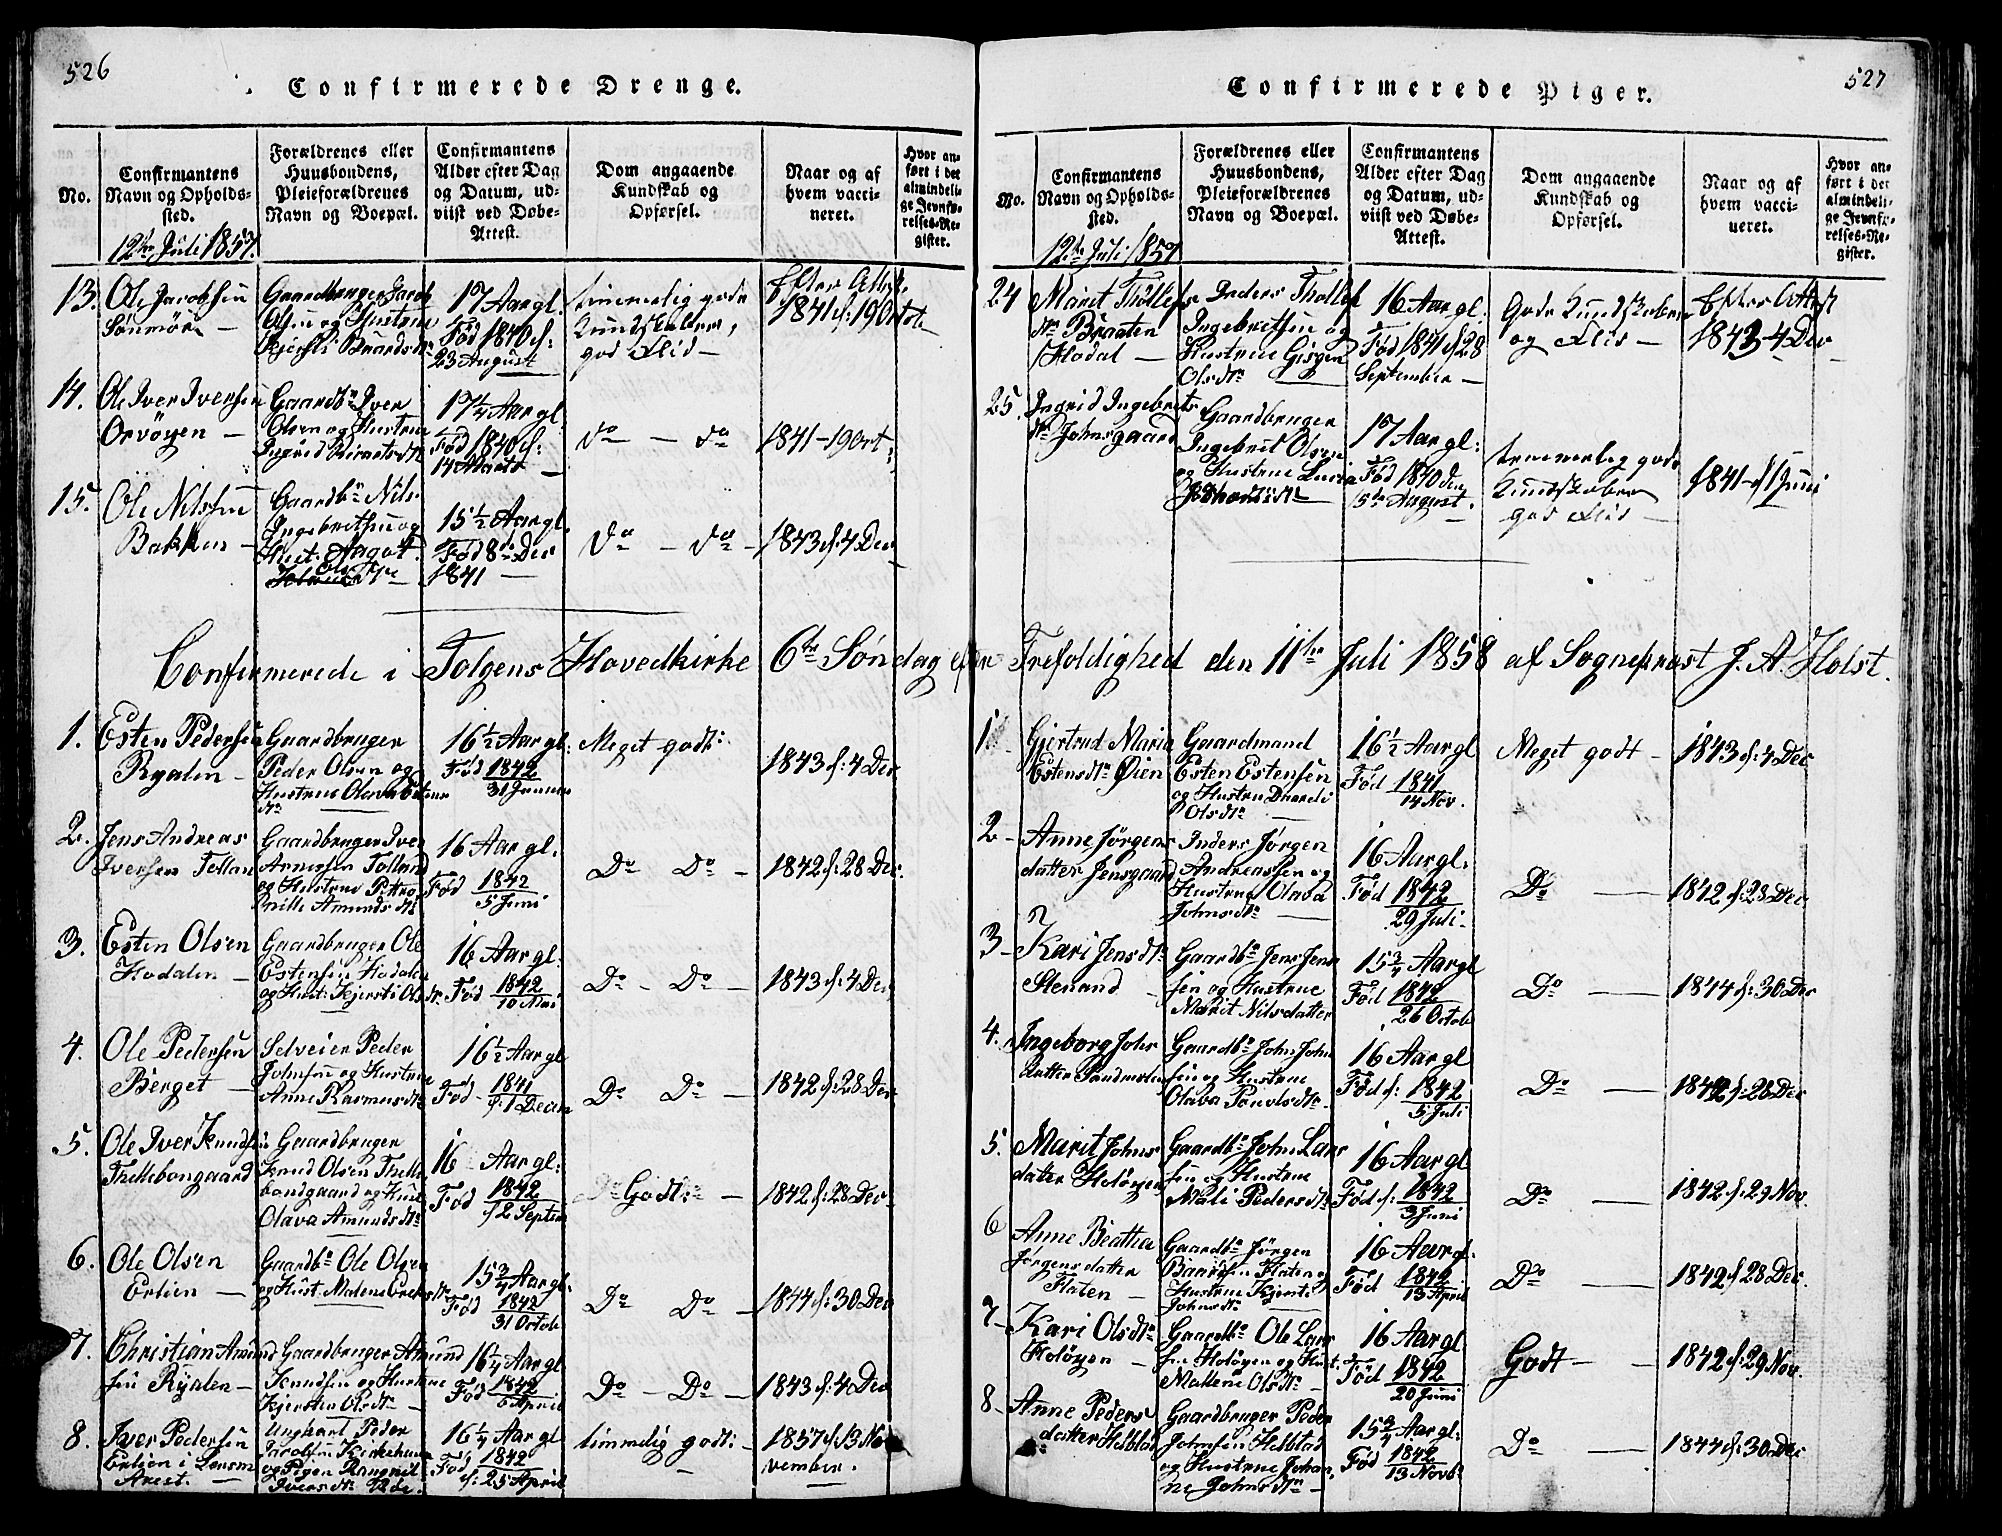 526
Confirmerede Drenge.
No.
Confirmantens
Navn og Opholds-
sted.
Forældrenes eller
Huusbondens,
Pleieforældrenes
Navn og Boepæl.
Confirmantens
Alder efter Dag
og Datum, ud-
viist ved Døbe-
Attest.
Dom angaaende
Kundskab og
Opførsel.
Naar og af
hvem vacci-
neret.
Hvor an-
ført i det
almindeli-
ge Jevnfø-
relses-Re-
gister.
12te Juli 1857.
13. Ole Jacobsen
Gaardbruger Jacob
Olsen og Hustrue
Kjersti Baardsdr
17 Aar gl.
Fød 1840 d:
23 August
temmelig gode
Kundskaber,
god Flid –
Efter Attest
1841 d: 19 Octob
14. Ole Iver Iversen
Orvöyen –
Gaardbr Iver
Olsen og Hustrue
Ingrid
17 1/4 Aar gl.
Fød 1840 d:
14 Martz –
do – do
1841 – 19 Oct:
15. Ole Nilssen
Bakken –
Gaardbr Nils
Ingebritsen og
Hust: Aagot
Ols dtr –
15 1/2 Aar gl.
Fød 8de Dec
1841 –
do – do –
1843 d: 4 Dec
Confirmerede i Tolgens Hovedkirke 6te Søndag efter Trefoldighed den 11te Juli 1858 af Sogneprest J. A. Holst.
1. Esten Pedersen
Ryalen –
Gaardbruger
Peder Olsen og
Hustrue Olava Estens
dtr
16 1/2 Aar gl:
Fød 1842
31 Januar
Meget godt:
1843 d: 4 Dec
2. Jens Andreas
Iversen Tellan
Gaardbruger Iver
Arnessen Tollan
og Hustrue Petro
nille Amunds dtr
16 Aar gl.
Fød 1842
5 Juni
Do Do –
1842 d: 28 Dec.
3. Esten Olsen
Hodalen –
Gaardbruger Ole
Estensen Hodalen
og Hust: Kjersti Ols
dtr
16 Aar gl:
Fød 1842
10 Mai
Do – Do –
1843 d: 4 Dec
4. Ole Pedersen
Berget –
Selveier Peder
Johnsen og Hustrue
Anne Rasmusdtr
16 1/2 Aar gl
Fød – 1841
d: 1 Decem
Do Do –
1842 d: 28 Dec
5. Ole Iver Knudsen
Thellebongaard
Gaardbruger
Knud Olsen Thelle
bondgaard og Hust
Olava Amundsdtr
16 Aar gl:
Fød 1842
d 2 Septem
Godt: –
1842 d: 28 Dec
6. Ole Olsen
Erlien –
Gaardbr Ole Olsen
og Hust. Malene Ereks
dtr
15 3/4 Aar gl.
Fød 1842
31 Octob
Do Do –
1844 d: 30 Dec
7. Christian Amund
sen Ryalen –
Gaardbruger Amund
Knudsen og Hustrue
Kjersten Olsdtr –
16 1/4 Aar gl
Fød 1842
6 April
Do – Do –
1843 d: 4 Dec
8. Iver Pedersen
Erlien i Lensm
Arest. –
Ungkarl Peder
Jacobsen
og Pigen Rangnil
Iversdtr
16 1/4 Aar gl
Fød 1842
d: 25 April
temmelig godt: –
1857 d: 13 No
vember.
527
Confirmerede Piger.
No.
Confirmantens
Navn og Opholds-
sted.
Forældrenes eller
Huusbondens,
Pleieforældrenes
Navn og Boepæl.
Confirmantens
Alder efter Dag
og Datum, ud-
viist ved Døbe-
Attest.
Dom angaaende
Kundskab og
Opførsel.
Naar og af
hvem vacci-
neret.
Hvor an-
ført i det
almindeli-
ge Jevnfø-
relses-Re-
gister.
12te Juli 1857
24 Marit Thollefs
dtr Braaten
Hodal –
Inders Thollef
Ingebritsen og
Hustrue
Olsdtr
16 Aar gl.
Fød 1841 d 28
September –
Gode Kundskaber
og Flid –
Efter Attest
1843 – 4 Dec –
25. Ingrid Ingebrits
dtr Johnsgaard
Gaardbruger
Ingebrit Olsen
og Hustrue Lucia
17 Aar gl:
Fød 1840 den
15de August.
temmelig gode
Kundskaber
god Flid –
1841 – d 1 Juni
1 – Gjertrud Maria
Estensdtr Øien
Gaardmand
Esten Estensen
og Hustrue
Olsdtr –
16 1/2 Aar gl
Fød 1841
14 Nov.
Meget godt –
1843 d: 4 Dec
2 – Anne Jørgens
datter Jensgaard
Inders Jørgen
Andreassen og
Hustrue Olava
Johnsdtr –
16 Aar gl:
Fød 1842
29 Juli.
Do –
1842 d: 28 Dec
3 – Kari Jensdtr
Stenand –
Gaardbr Jens Jens
sen og Hustrue
Marit Nilsdatter
15 3/4 Aar gl
Fød 1842
26 Octob
Do –
1844 d: 30 Dec
4. Ingeborg Johns
datter
Gaardbr John John
sen og Hustrue
Olava Povelsdtr
16 Aar gl
Fød d: 1842
5 Juli
Do –
1842 d: 28 Dec
5. Marit Johns
datter Holöyen
Gaardbr John Lars
sen og Hustrue
Mali Pedersdtr
16 Aar gl
Fød d: 1842
3 Juni
Do –
1842 d: 29 Nov.
6 Anne Beathea
Jørgensdatter
Flaten –
Gaardbr Jørgen
Baardsen Flaten og
Hustrue Kjersti
Johnsdtr
16 Aar gl.
Fød 1842
13 April
Do –
1842 d 28 Dec.
7 – Kari Olsdtr
Holöyen –
Gaardbr Ole Lars
sen Holöyen og Hust:
Mallene Olsdtr –
16 Aar gl
Fød 1842
20 Juni
Godt – –
1842 d: 29 Nov.
8 – Anne Peders
datter Helstad
Gaardbruger Peder
Johnsen Helstad
og Hustrue Johan
ne Johnsdtr –
15 3/4 Aar gl:
Fød 1842
13 Novb:
Do –
1844 d: 30 Dec